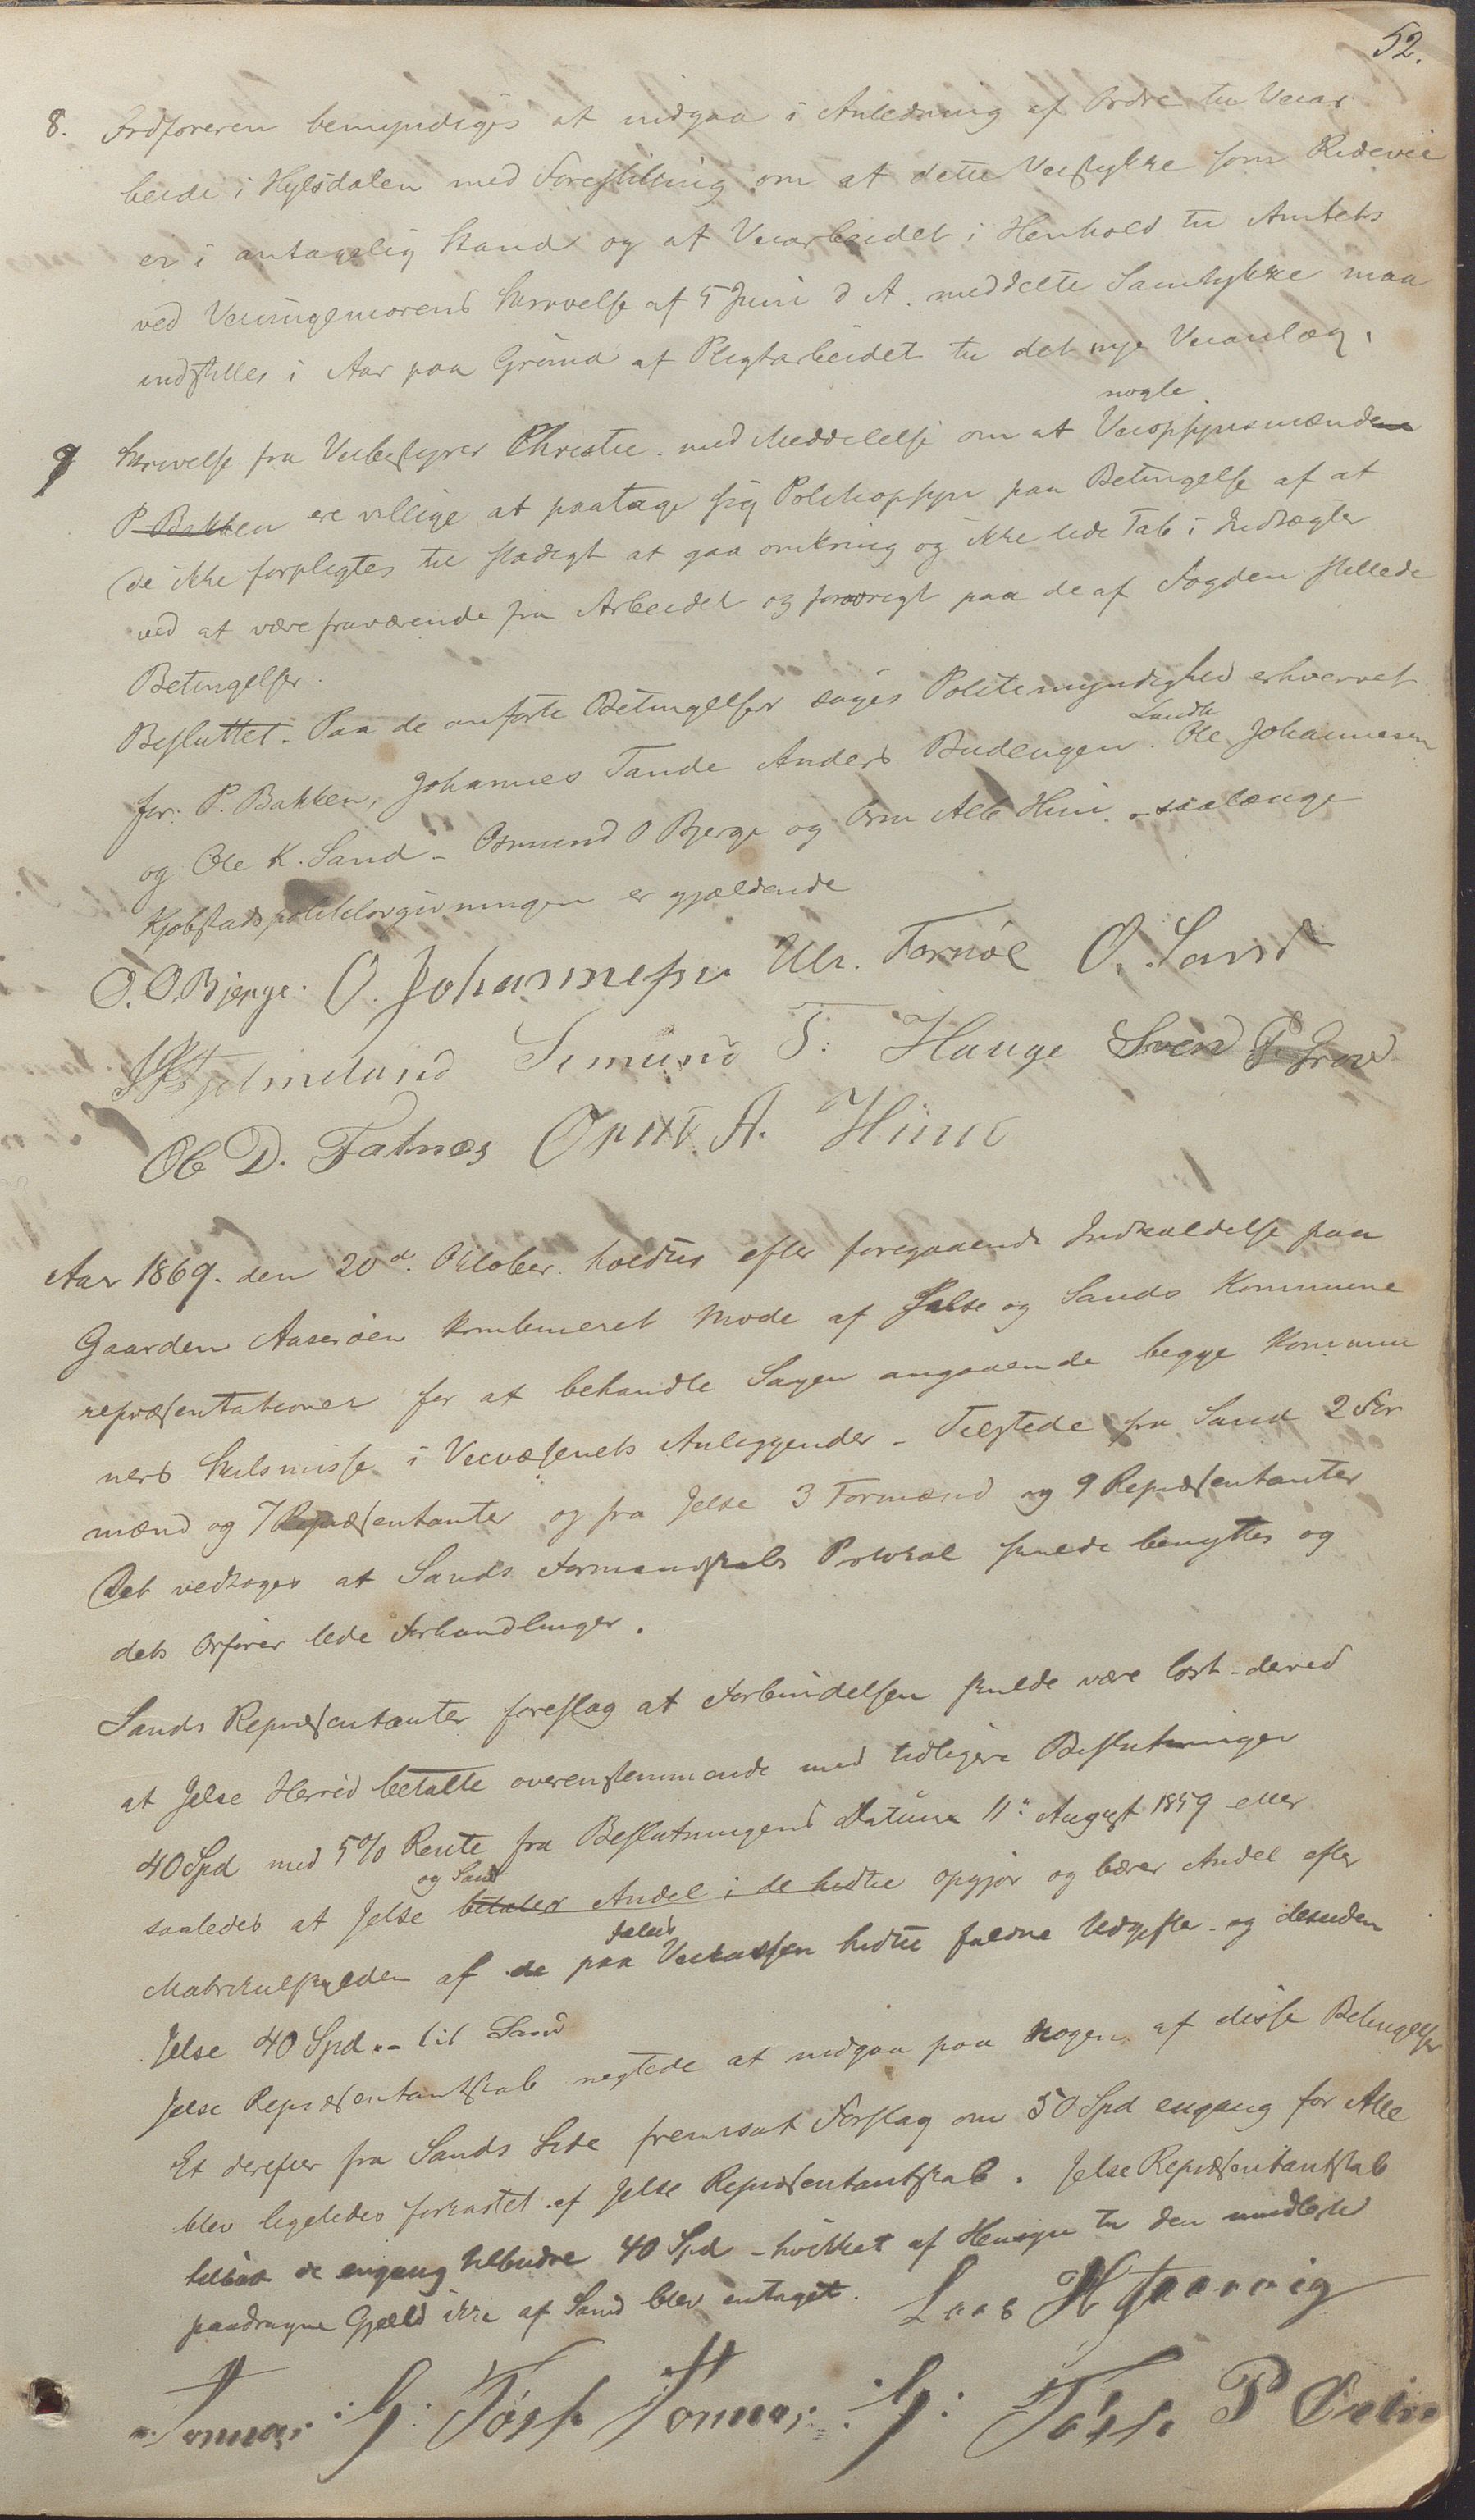 52.
8. Ordføreren bemyndiges at indgaa i Anledning af Ordre til Veiar
beide i Hylsdalen med Forestilling om at dette Veistykke som Rideveie
er i antagelig Stand og at Veiarbeidet i Henhold til Amtets
ved Veiingeniørens Skrivelse af 5 Juni d A. meddelte Samtykke maa
indstilles i Aar paa Grund af Pligtarbeidet til det nye Veianlæg.
nogle
9 Skrivelse fra Veibestyrer Christie med Meddelelse om at Veiopsynsmændene
P Bakken ere villige at paatage sig Politiopsyn paa Betingelse af at
de ikke forpligtes til stadigt at gaa omkring og ikke lide Tab i Indtægter
ved at være fraværende fra Arbeidet og forøvrigt paa de af Fogden stillede
Betingelser.
Besluttet. Paa de anførte Betingelser søges Politimyndighed erhvervet
Sandu
for: P. Bakken, Johannes Tande Anders Budengen. Ole Johannesen
og Ole K. Sand - Osmund O Bjerge og Orm A Hiim - saalænge
Kjøbstadspolitilovgivningen er gjældende
O. O. Bjerge. O. Johannesen Ul. Fornøe O. Sand
Hjelmeland Simund T: Hauge Sven P. Grov
Ole D. Fatnes Orm A. Hiim
Aar 1869. den 20d. Oktober holdtes efter foregaaende Indkaldelse paa
Gaarden Aaserøen kombineret Møde af Jelse og Sands Kommune
repræsentationer for at behandle Sagen angaaende begge Kommu
ners Skilsmisse i Veivæsenets Anliggender - Tilstede fra Sand 2 For
mænd og 7 Repræsentanter og fra Jelse 3 Formænd og 9 Repræsentanter
Det vedtoges at Sands Formandskabs Protokol skulde benyttes og
dets Orfører lede Forhandlinger.
Sands Repræsentanter foreslog at Forbindelsen skulde være løst - derved
at Jelse Herred betalte overenstemmende med tidligere Beslutninger
40 Spd med 5% Rente fra Beslutningens Datum 11te August 1859 eller
og Sand
saaledes at Jelse betaler Andel i de hidtil opgjør og bærer Andel efter
Matrikulskylden af de paa Veikassen hidtil faldne Udgifter - og desuden
Jelse 40 Spd. - til Sand
Jelse Repræsentantskab negtede at indgaa paa nogen af disse Betingelser
Et derefter fra Sands Side fremsat Forslag om 50 Spd engang for Alle
blev ligeledes forkastet af Jelse Repræsentantskab. Jelse Repræsentantskab
tilbød de engang tilbudne 40 Spd - hvilket af Hensyn til den imidlertid
paadragne Gjæld ikke af Sand blev antaget.
Lars H Haarvig
Tomas: G: Tøsse Tomas: G: Tøsse P